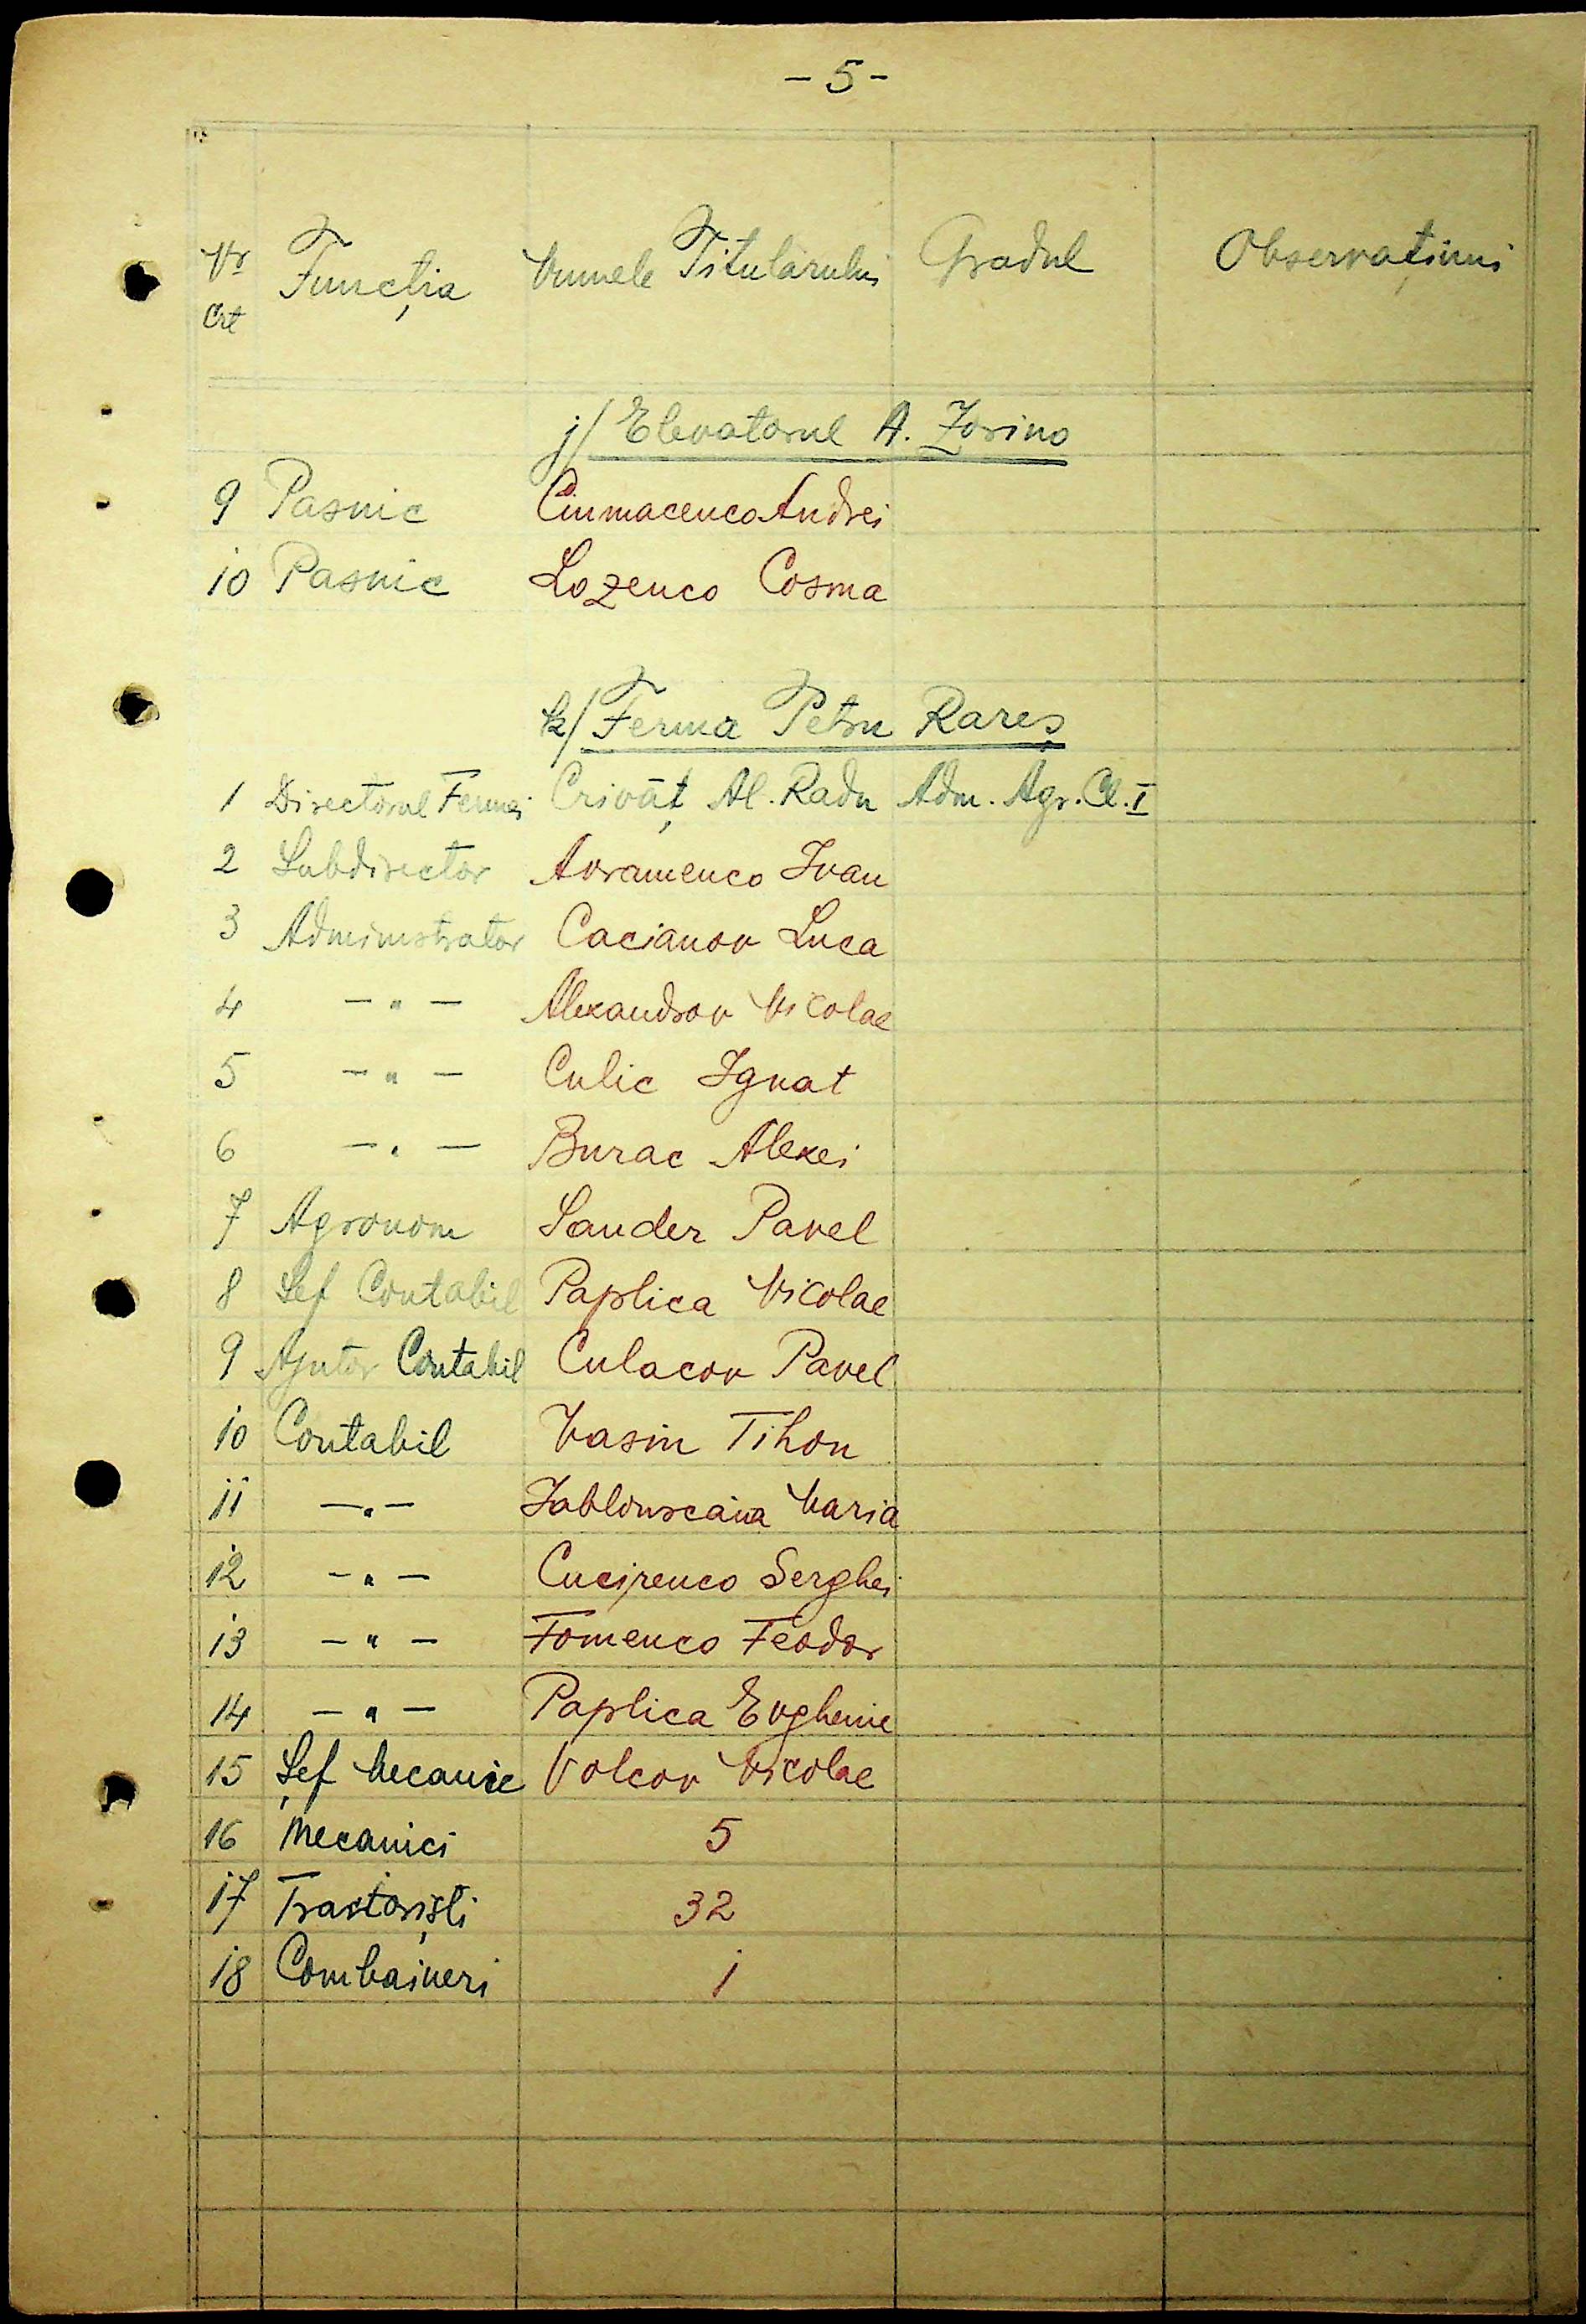 - 5 -
Nr Crt Funcția Numele Titularului Gradul Observațiuni
j/ Elevatorul A. Zorino
9 Pasnic Ciumacenco Andrei
10 Pasnic Lozenco Cosma
k/ Ferma Petru Rareș
1 Directorul Fermei Crivăț Al. Radu Adm. Agr. Cl. I
2 Subdirector Avramenco Ivan
3 Administrator Cacianov Luca
4 - " - Alexandrov Nicolae
5 - " - Culic Ignat
6 - " - Burac Alexei
7 Agronom Sander Pavel
8 Sef Contabil Paplica Nicolae
9 Ajutor Contabil Culacov Pavel
10 Contabil Vasin Tihon
11 - " - Iablonscaia Maria
12 - " - Cucirenco Serghei
13 - " - Fomenco Feodor
14 - " - Paplica Evghenie
15 Șef Mecanic Volcov Nicolae
16 Mecanici 5
17 Tractoriști 32
18 Combaineri 1